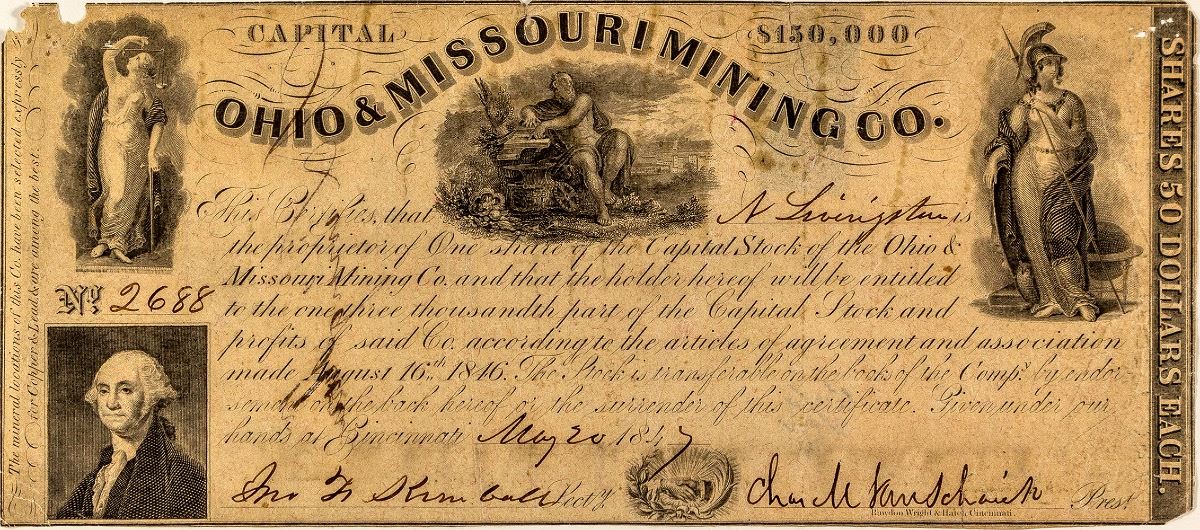 CAPITAL $150,000
OHIO & MISSOURI MINING CO.
This Certifies, that N Livingston is
the proprietor of One share of the Capital Stock of the Ohio &
Missouri Mining Co. and that the holder hereof will be entitled
to the one three thousandth part of the Capital Stock and
profits of said Co. according to the articles of agreement and association
made August 16th 1846. The Stock is transferable on the books of the Compy. by endor
sement on the back hereof or the surrender of this certificate. Given under our
hands at Cincinnati May 20 1847
Jno F Kimball Secty. Chas M Van Schaick Prest.
Rawdon Wright & Hatch, Cincinnati.
No. 2688
The mineral locations of this Co. have been selected expressly
for Copper & Lead & are among the best.
SHARES 50 DOLLARS EACH.